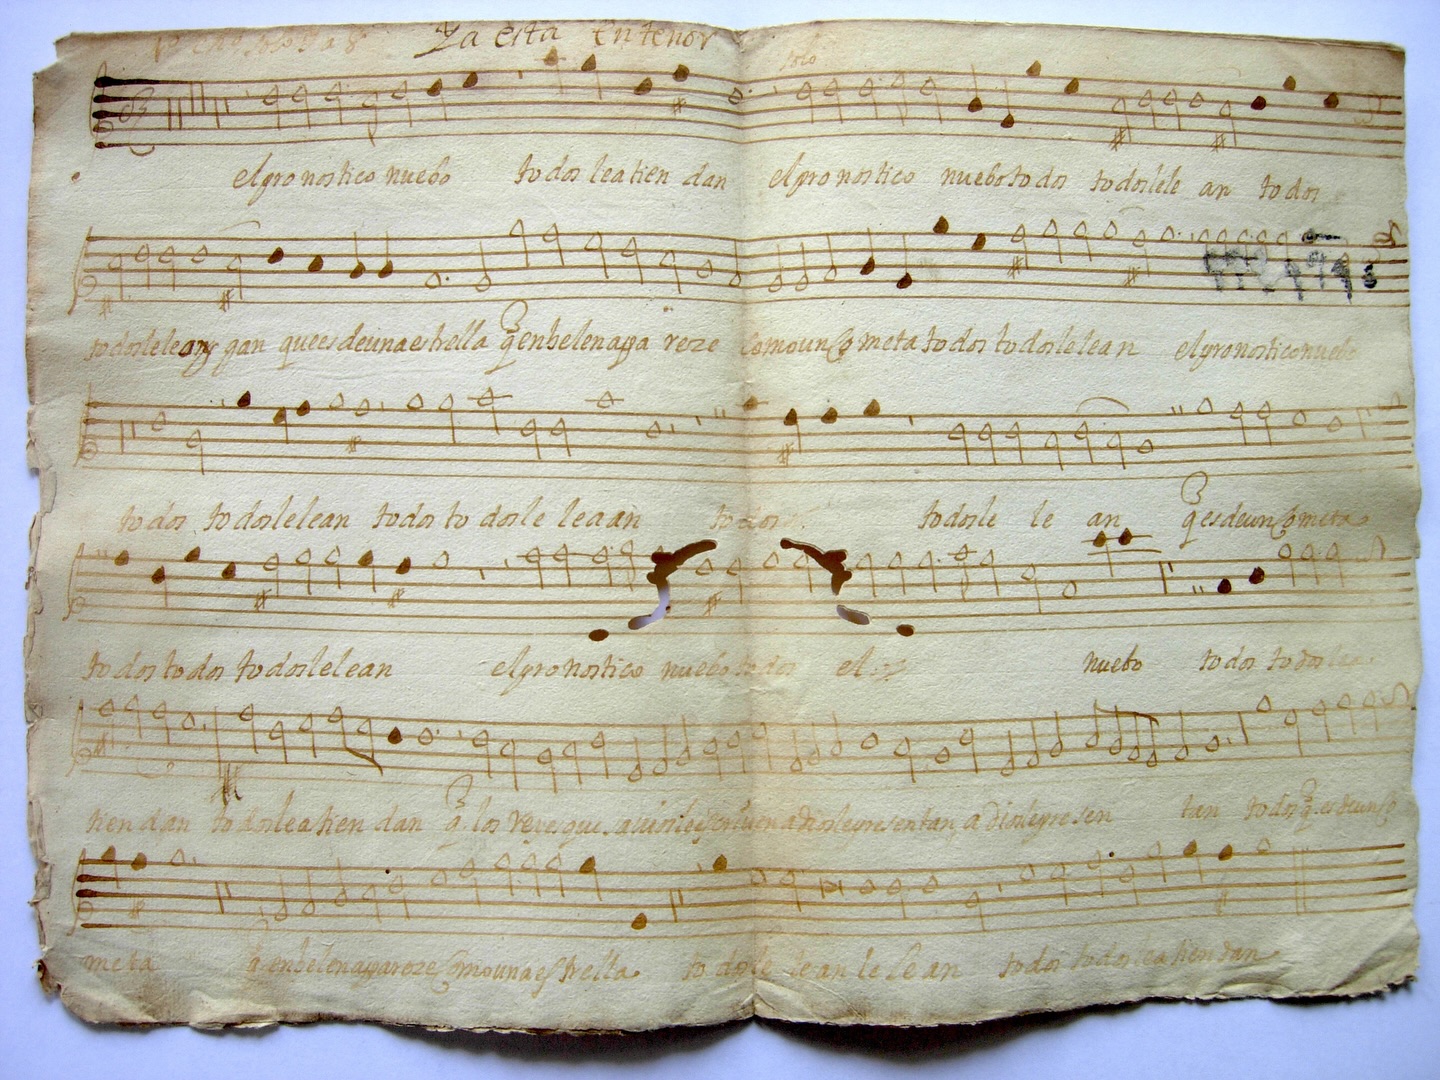 Ya esta En tenor
solo
el pronostico nuebo todos le atien dan el pro nostico nuebo todos todos le le an todos
todos le le an gan que es de una estrella q en belen apa reze Como un Co meta todos todos le lean el pronostico nuebo
todos todos le lean todos to dos le le a an todos todos le le an q es de un Co meta
todos todos todos le lean el pro nostico nuebo todos el nuebo todos todos le a
tien dan todos le a tien dan q los reyes que a dios le presen tan a dios le pre sen tan todos q es de un Co
meta q en belen apareze Como una estrella todos le lean le le an todos todos le a tien dan